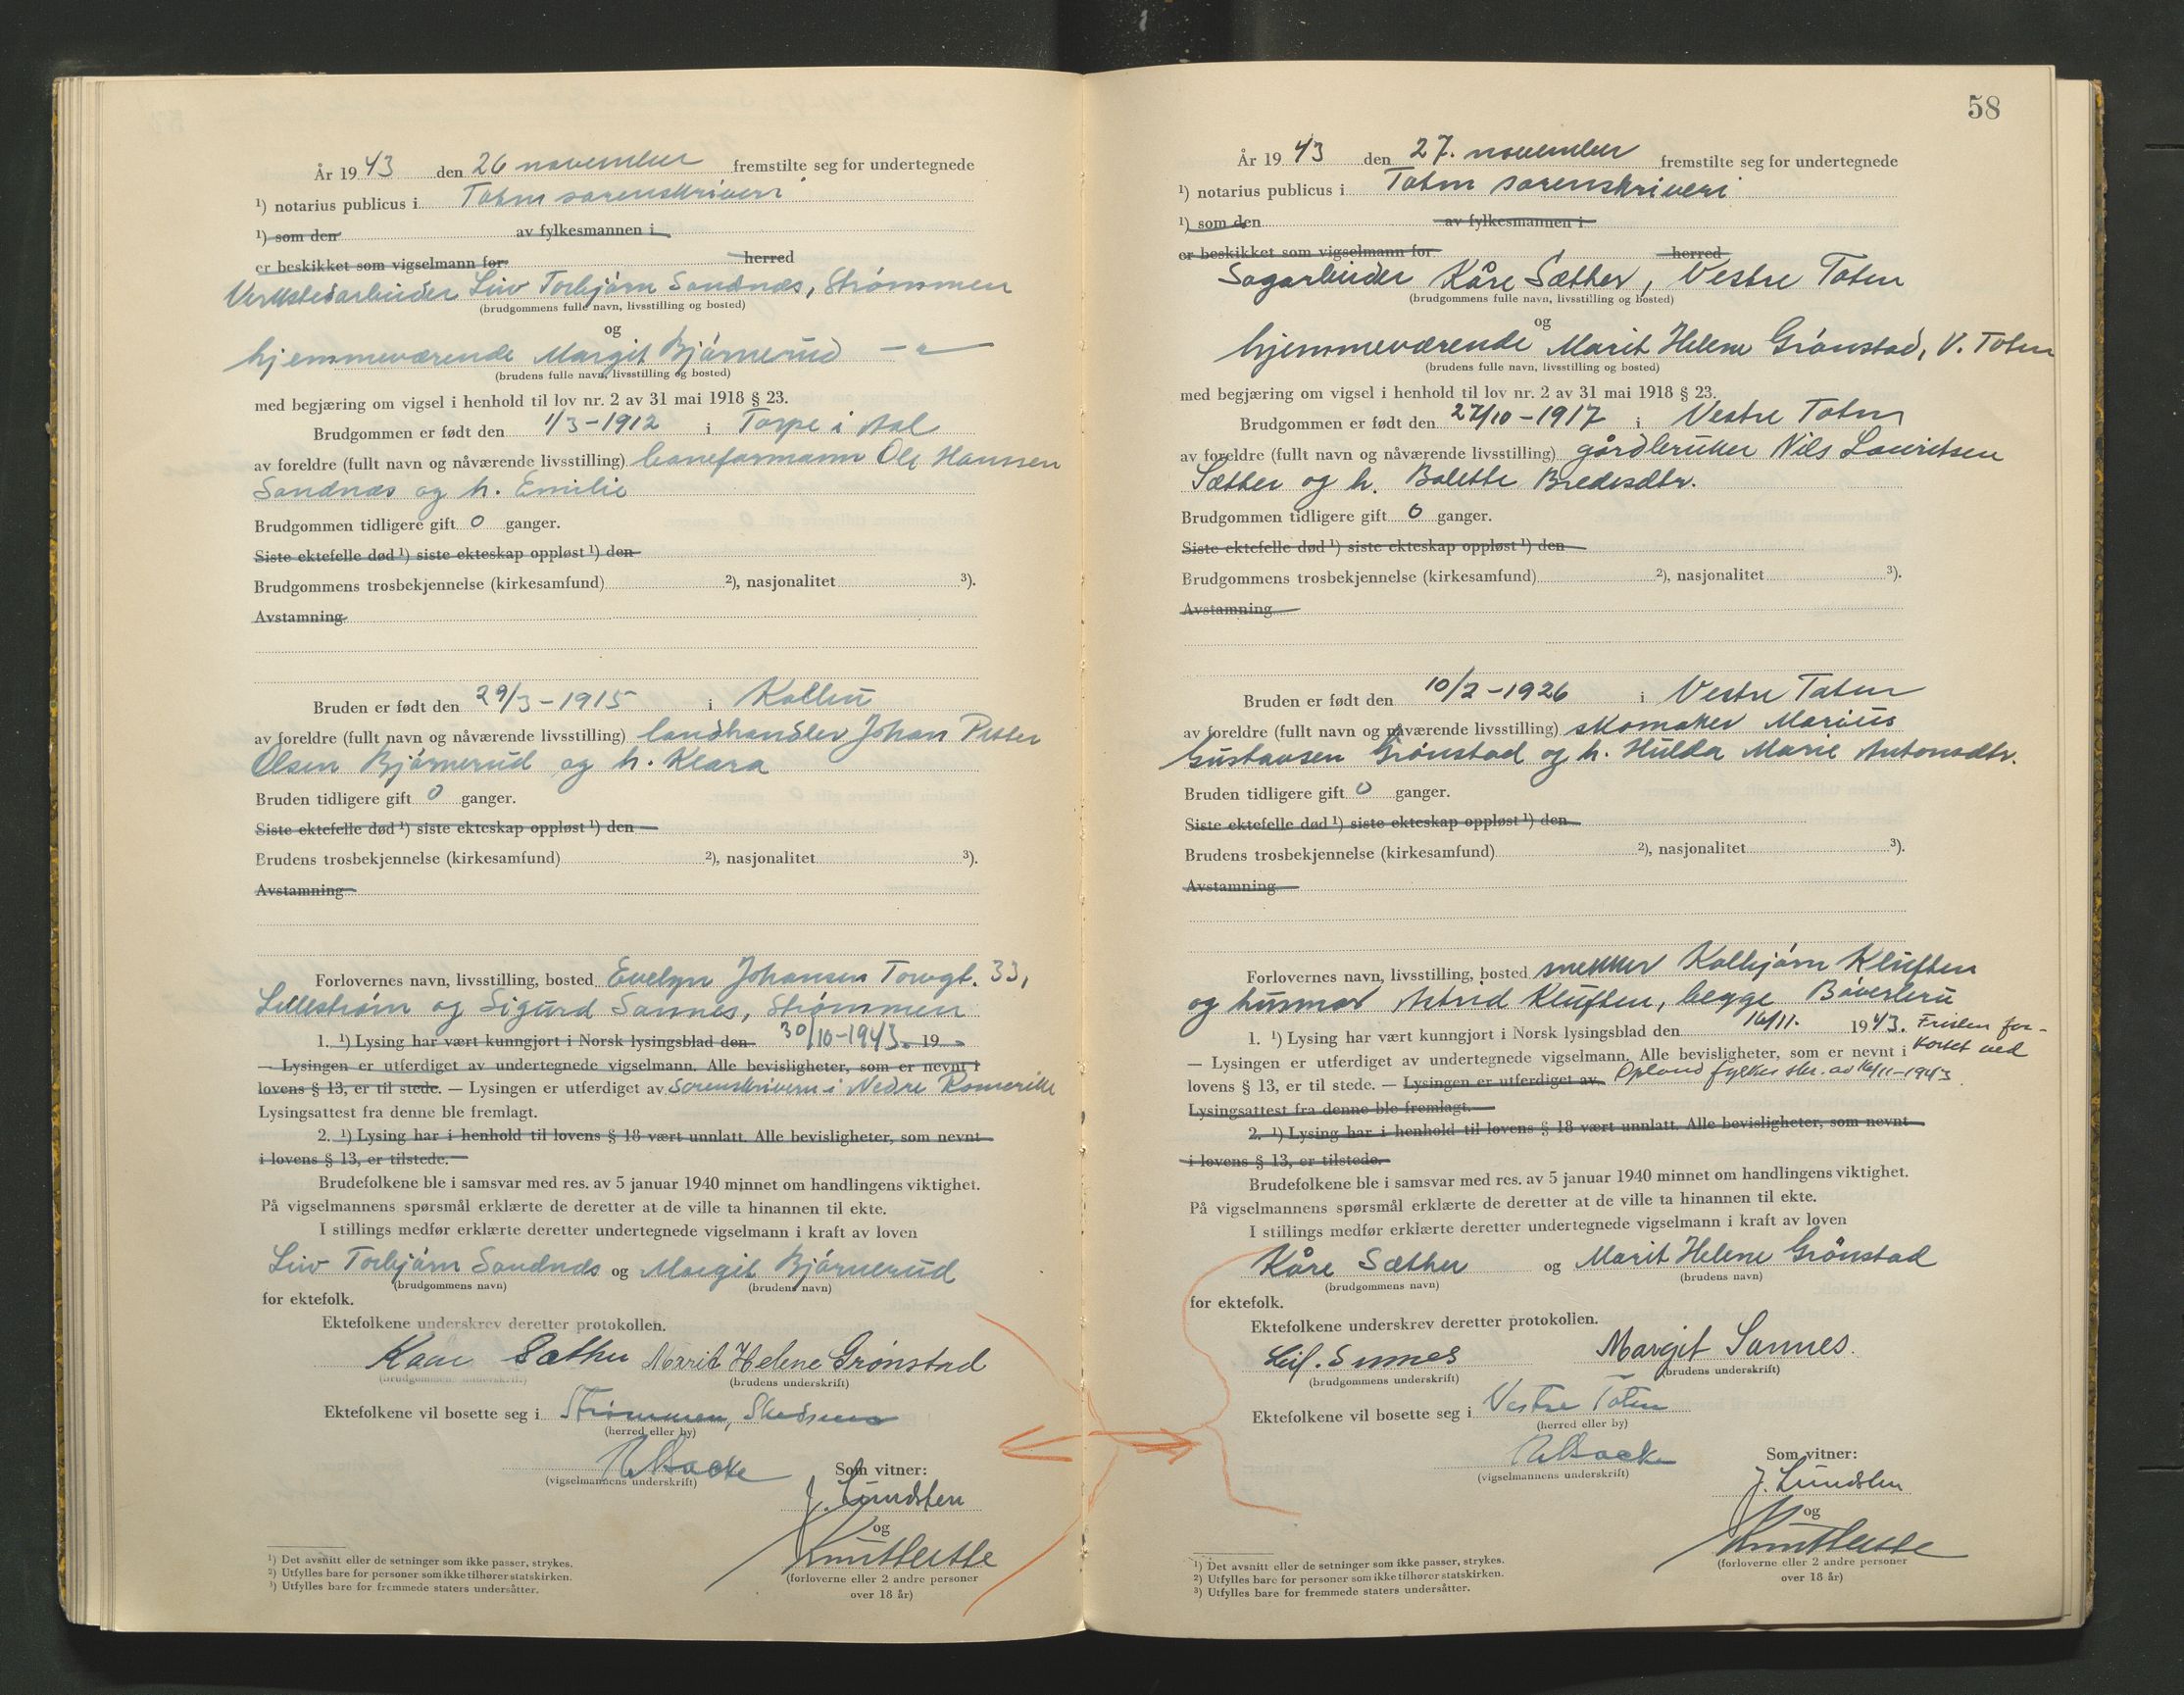 År 1943 den 26 november fremstilte seg for undertegnede
¹) notarius publicus i Toten sorenskriveri
¹) som den av fylkesmannen i
er beskikket som vigselmann for: herred
Verkstedarbeider Liv Torbjørn Sandnæs, Strømmen
(brudgommens fulle navn, livsstilling og bosted)
og
hjemmeværende Margit Bjørnerud — " —
(brudens fulle navn, livsstilling og bosted)
med begjæring om vigsel i henhold til lov nr. 2 av 31 mai 1918 § 23.
Brudgommen er født den 1/3-1912 i Torpe i Aal
av foreldre (fullt navn og nåværende livsstilling) baneformann Ole Hanssen
Sandnæs og h. Emilie
Brudgommen tidligere gift 0 ganger.
Siste ektefelle død ¹) siste ekteskap oppløst ¹) den
Brudgommens trosbekjennelse (kirkesamfund) ²), nasjonalitet ³).
Avstamning
Bruden er født den 29/3-1915 i Kolbu
av foreldre (fullt navn og nåværende livsstilling) landhandler Johan Petter
Olsen Bjørnerud og h. Klara
Bruden tidligere gift 0 ganger.
Siste ektefelle død ¹) siste ekteskap oppløst ¹) den
Brudens trosbekjennelse (kirkesamfund) ²), nasjonalitet ³).
Avstamning
Forlovernes navn, livsstilling, bosted Evelyn Johansen Torvgt. 33,
Lillestrøm og Sigurd Sannes, Strømmen
1. ¹) Lysing har vært kunngjort i Norsk lysingsblad den 30/10-1943. 19
— Lysingen er utferdiget av undertegnede vigselmann. Alle bevisligheter, som er nevnt i
lovens § 13, er til stede. — Lysingen er utferdiget av Sorenskriveren i Nedre Romerike
Lysingsattest fra denne ble fremlagt.
2. ¹) Lysing har i henhold til lovens § 18 vært unnlatt. Alle bevisligheter, som nevnt
i lovens § 13, er tilstede.
Brudefolkene ble i samsvar med res. av 5 januar 1940 minnet om handlingens viktighet.
På vigselmannens spørsmål erklærte de deretter at de ville ta hinannen til ekte.
I stillings medfør erklærte deretter undertegnede vigselmann i kraft av loven
Liv Torbjørn Sandnæs og Margit Bjørnerud
(brudgommens navn) (brudens navn)
for ektefolk.
Ektefolkene underskrev deretter protokollen.
Kaare Sæther Marit Helene Grønstad
(brudgommens underskrift) (brudens underskrift)
Ektefolkene vil bosette seg i Strømmen, Skedsmo
(herred eller by)
(vigselmannens underskrift) Som vitner:
J. Lundsten
og
(forloverne eller 2 andre personer
over 18 år)
¹) Det avsnitt eller de setninger som ikke passer, strykes.
²) Utfylles bare for personer som ikke tilhører statskirken.
³) Utfylles bare for fremmede staters undersåtter.
58
År 1943 den 27. november fremstilte seg for undertegnede
¹) notarius publicus i Toten sorenskriveri
¹) som den av fylkesmannen i
er beskikket som vigselmann for herred
Sagarbeider Kåre Sæther, Vestre Toten
(brudgommens fulle navn, livsstilling og bosted)
og
hjemmeværende Marit Helene Grønstad, V. Toten
(brudens fulle navn, livsstilling og bosted)
med begjæring om vigsel i henhold til lov nr. 2 av 31 mai 1918 § 23.
Brudgommen er født den 27/10-1917 i Vestre Toten
av foreldre (fullt navn og nåværende livsstilling) gårdbruker Nils Lauritsen
Sæther og h. Bolette Bredesdtr.
Brudgommen tidligere gift 0 ganger.
Siste ektefelle død ¹) siste ekteskap oppløst ¹) den
Brudgommens trosbekjennelse (kirkesamfund) ²), nasjonalitet ³).
Avstamning
Bruden er født den 10/2-1926 i Vestre Toten
av foreldre (fullt navn og nåværende livsstilling) skomaker Marius
Gustavsen Grønstad og h. Hulda Marie Antonsdtr.
Bruden tidligere gift 0 ganger.
Siste ektefelle død ¹) siste ekteskap oppløst ¹) den
Brudens trosbekjennelse (kirkesamfund) ²), nasjonalitet ³).
Avstamning
Forlovernes navn, livsstilling, bosted snekker Kolbjørn Kluften
og husmor Astrid Kluften, begge Bøverbru
1. ¹) Lysing har vært kunngjort i Norsk lysingsblad den 16/11. 1943. Fristen for-
— Lysingen er utferdiget av undertegnede vigselmann. Alle bevisligheter, som er nevnt i kortet ved
lovens § 13, er til stede. — Lysingen er utferdiget av Opland fylkes skr. av 16/11-1943
Lysingsattest fra denne ble fremlagt.
2. ¹) Lysing har i henhold til lovens § 18 vært unnlatt. Alle bevisligheter, som nevnt
i lovens § 13, er tilstede.
Brudefolkene ble i samsvar med res. av 5 januar 1940 minnet om handlingens viktighet.
På vigselmannens spørsmål erklærte de deretter at de ville ta hinannen til ekte.
I stillings medfør erklærte deretter undertegnede vigselmann i kraft av loven
Kåre Sæther og Marit Helene Grønstad
(brudgommens navn) (brudens navn)
for ektefolk.
Ektefolkene underskrev deretter protokollen.
Margit Sannes.
(brudgommens underskrift) (brudens underskrift)
Ektefolkene vil bosette seg i Vestre Toten
(herred eller by)
(vigselmannens underskrift) Som vitner:
J. Lundsten
og
(forloverne eller 2 andre personer
over 18 år)
¹) Det avsnitt eller de setninger som ikke passer, strykes.
²) Utfylles bare for personer som ikke tilhører statskirken.
³) Utfylles bare for fremmede staters undersåtter.